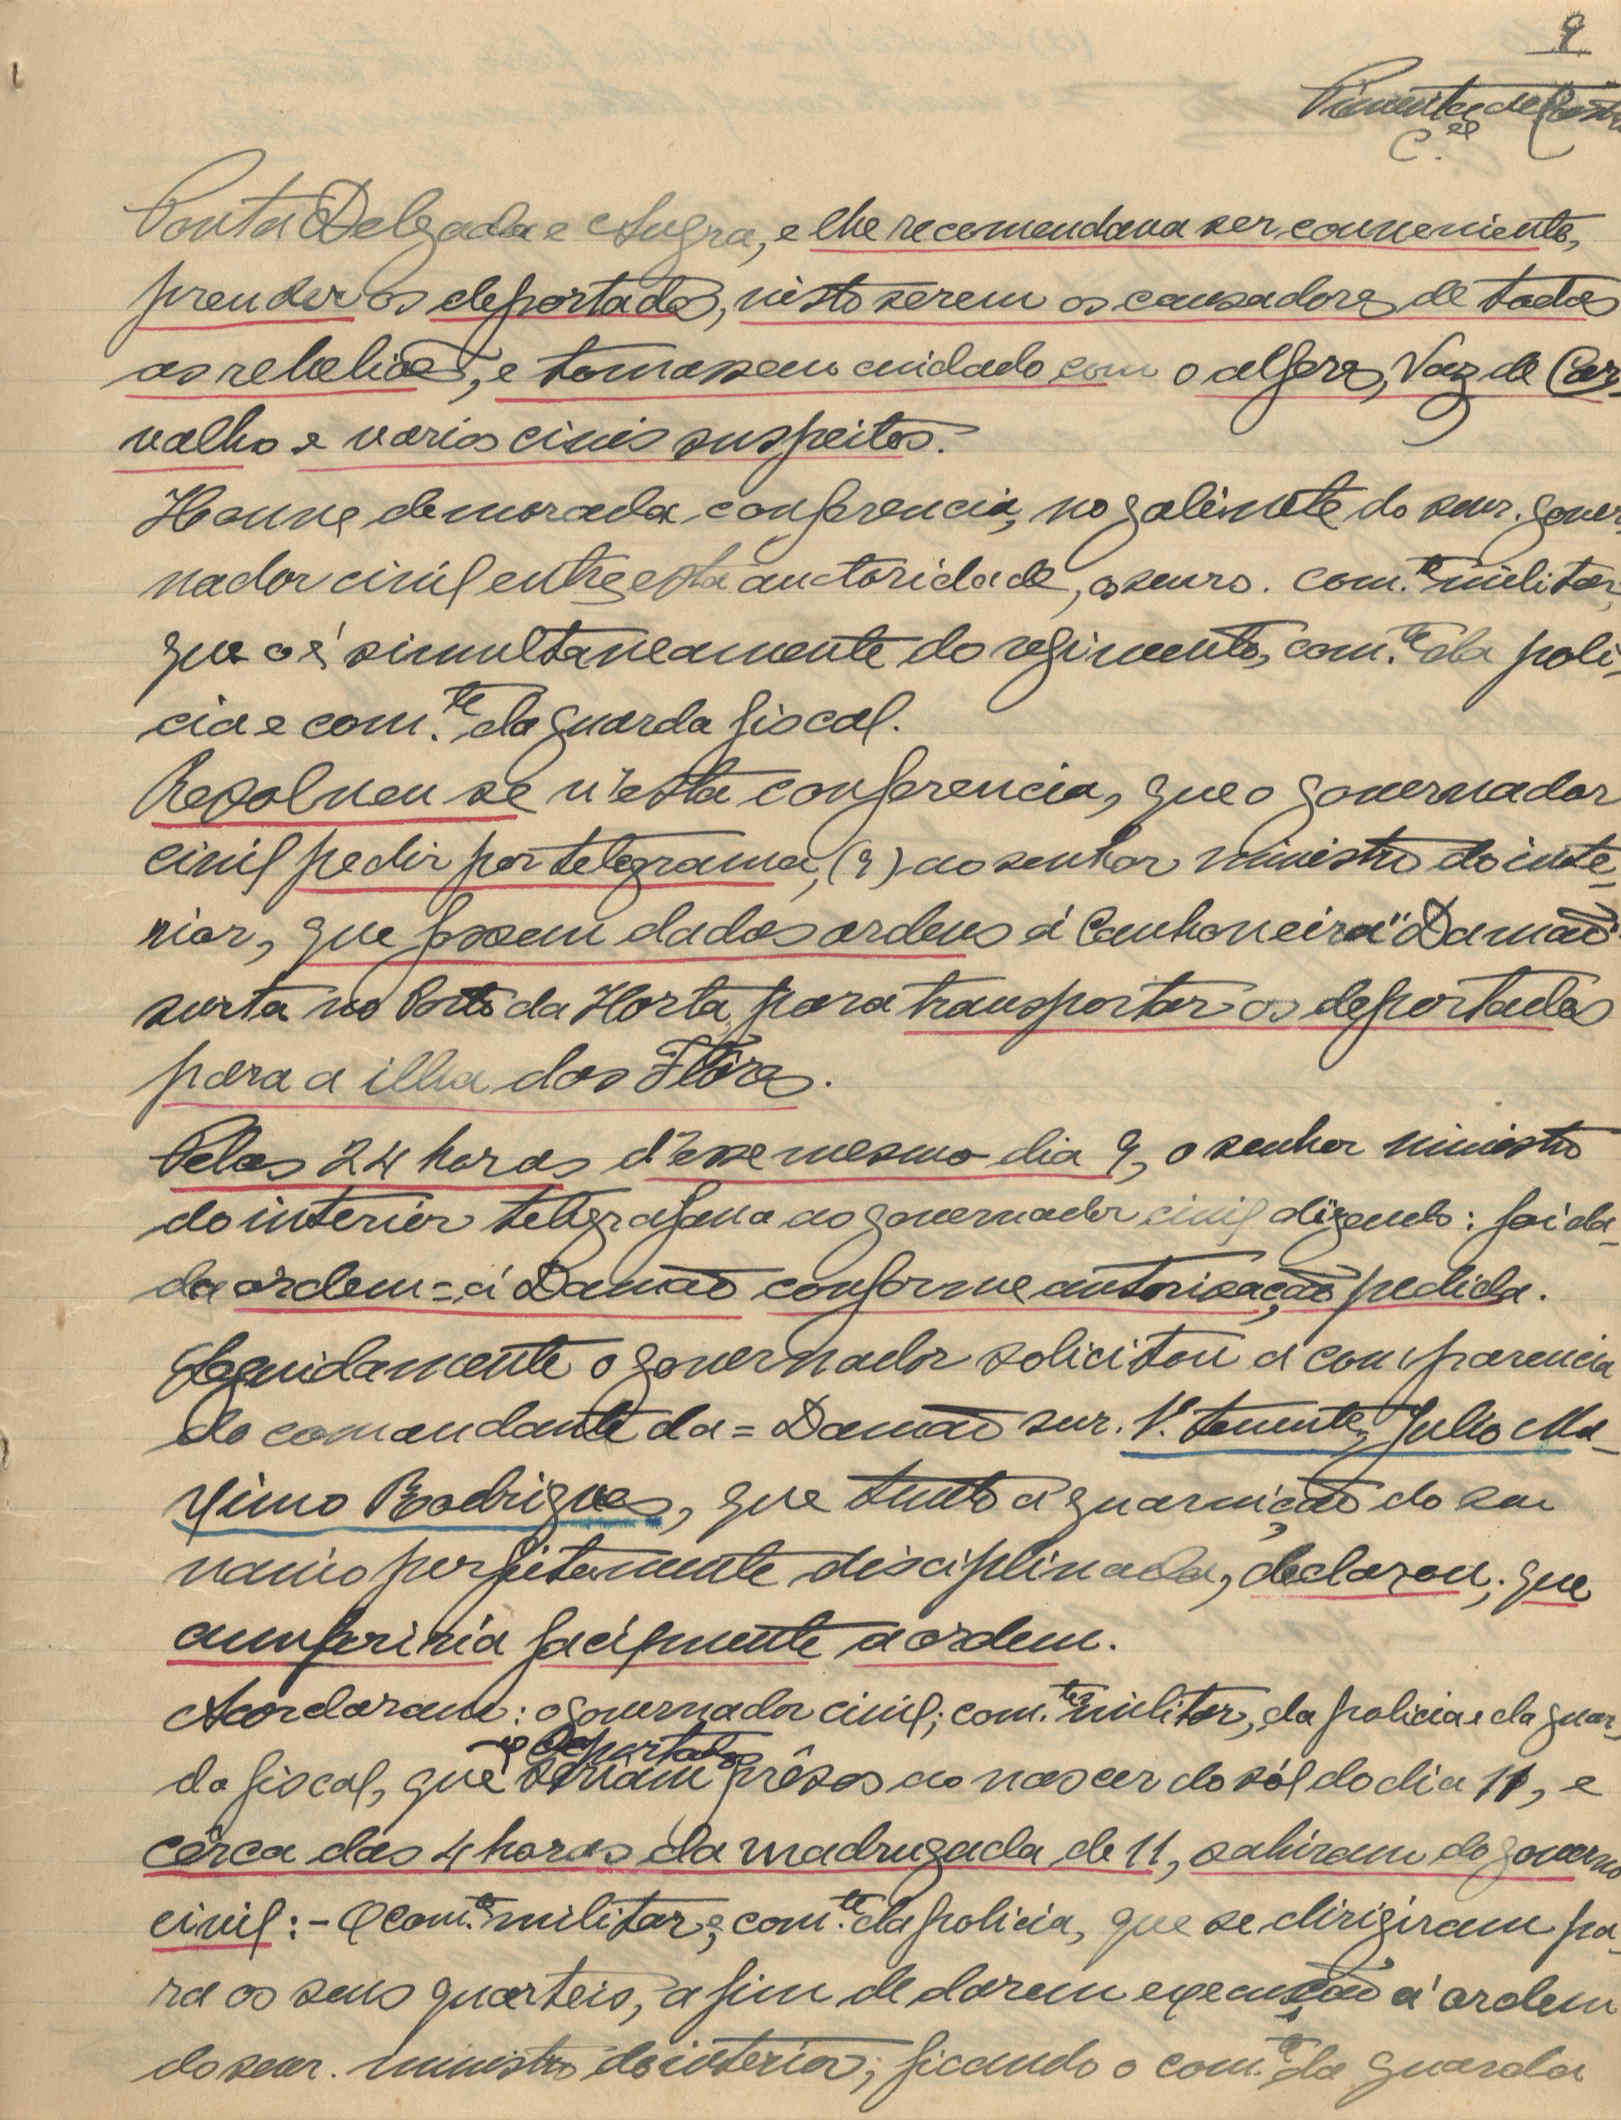 9
Pimenta de Castro
C.el
Ponta Delgada e Angra, e lhe recomendava ser conveniente,
prender os deportados, visto serem os causadores de todas
as rebeliões, e tomassem cuidado com o alferes, Vaz de Car-
valho e varios civis suspeitos.
Houve demorada conferencia, no gabinete do snr. gover-
nador civil entre esta auctoridade, os snrs. com.te militar,
que o é simultaneamente do regimento, com.te da poli-
cia e com.te da guarda fiscal.
Resolveu se n'esta conferencia, que o governador
civil pedir por telegrama, (9) ao senhor ministro do inte-
rior, que fossem dadas ordens á Canhoneira "Damão"
surta no Porto da Horta, para transportar os deportados
para a ilha das Flôres.
Pelas 24 horas d'esse mesmo dia 9, o senhor ministro
do interior telegrafava ao governador civil dizendo: foi da-
da ordem = á Damão conforme autorisação pedida.
Seguidamente o governador solicitou a comparencia
do comandante da = Damão snr. 1.º tenente, Julio Ma-
ximo Rodrigues, que tendo a guarnição do seu
navio perfeitamente disciplinada, declarou; que
cumpriria facilmente a ordem.
Acordaram: o governador civil; com.tes militar, da policia e da guar-
da fiscal, que os deportados seriam prêsos ao nascer do sól do dia 11, e
cêrca das 4 horas da madrugada de 11, sahiram do governo
civil: - O com.te militar, e com.te da policia, que se dirigiram pa-
ra os seus quarteis, a fim de darem execução á ordem
do snr. ministro do interior; ficando o com.te da guarda